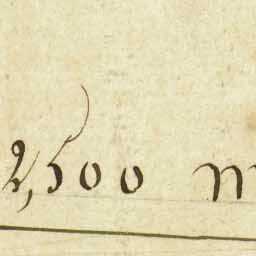 2,500 m